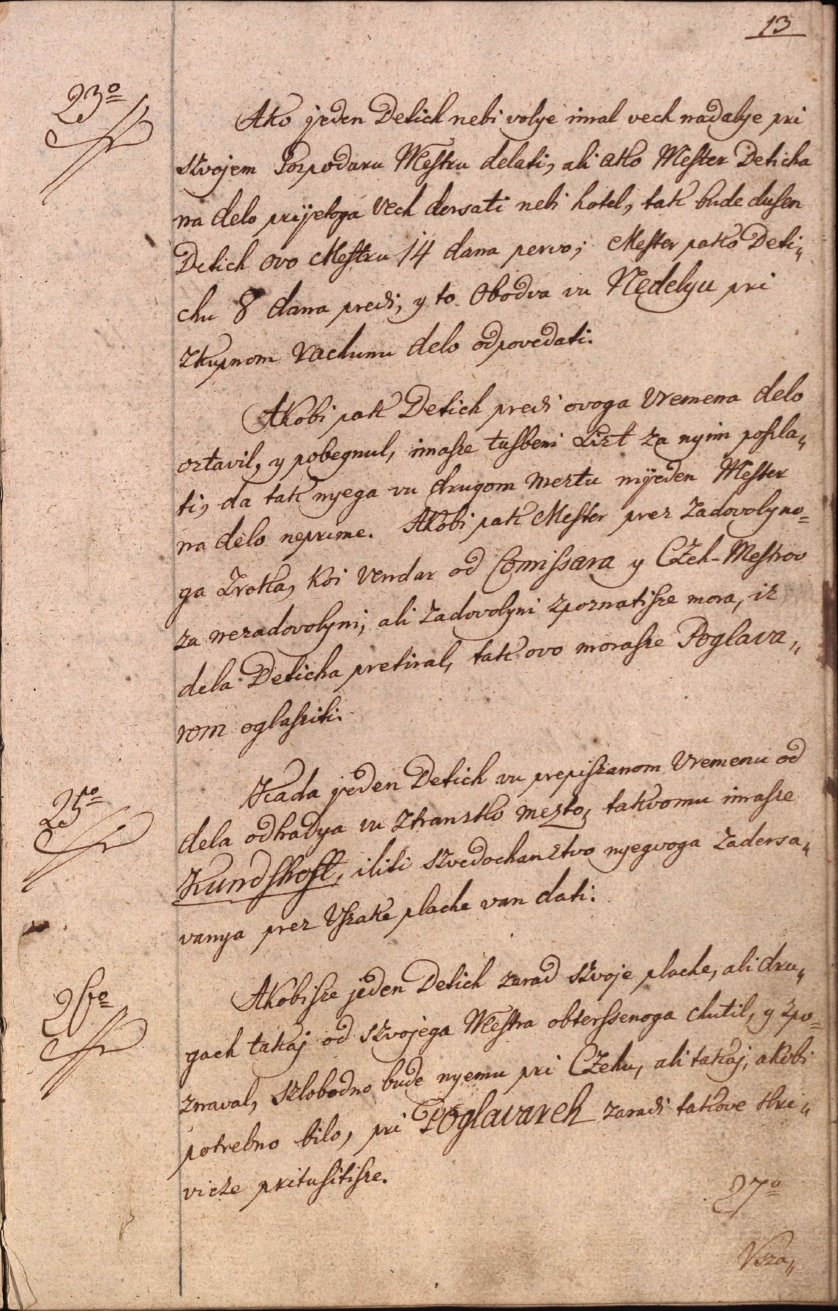 13
23º
Ako jeden Detich nebi volye imal vech nadalye pri
szvojem Gozpodaru Mestru delati, ali ako Mester Deticha
na delo prijetoga vech dersati nebi hotel, tak bude dusen
Detich ovo Mestru 14 dana pervo; Mester pako Deti„
chu 8 dana predi, y to Obodva vu Nedelyu pri
zkupnom Rachunu delo odpovedati.
Akobi pak Detich predi ovoga Vremena delo
oztavil, y pobegnul, imasze tusbeni Lizt za nyim poszla„
ti, da tak njega vu drugom meztu nijeden Mester
na delo neprime. Akobi pak Mester prez Zadovolyno=
ga Zroka, koi vendar od Comissara y Czeh-Mestrov
za nezadovolyni, ali zadovolyni zpoznatisze mora, iz
dela Deticha pretiral, tak ovo morasze Poglava„
rom oglasziti.
25º
Kada jeden Detich vu prepiszanom Vremenu od
dela odhadya vu Ztransko mezto, takvomu imasze
Kundshoft, iliti szvedochanztvo njegvoga Zadersa„
vanya prez Vszake plache van dati.
26º
Akobisze jeden Detich zarad szvoje plache, ali dru„
gach takaj od szvojega Mestra obterssenoga chutil, y zpo=
znaval, szlobodno bude nyemu pri Czehu, ali takaj, akobi
potrebno bilo, pri Poglavareh zaradi takove kri„
vicze pritusitisze.
27º
Vsza„